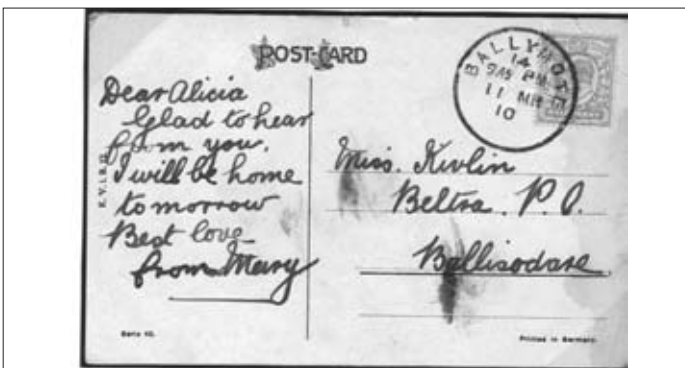 POST-CARD
BALLYMOTE
11 MR
10
Dear Alicia
Glad to hear
from you.
I will be home
tomorrow
Best love
from Mary
Miss. Kivlin
Beltra. P.O.
Ballisodare
Printed in Germany.